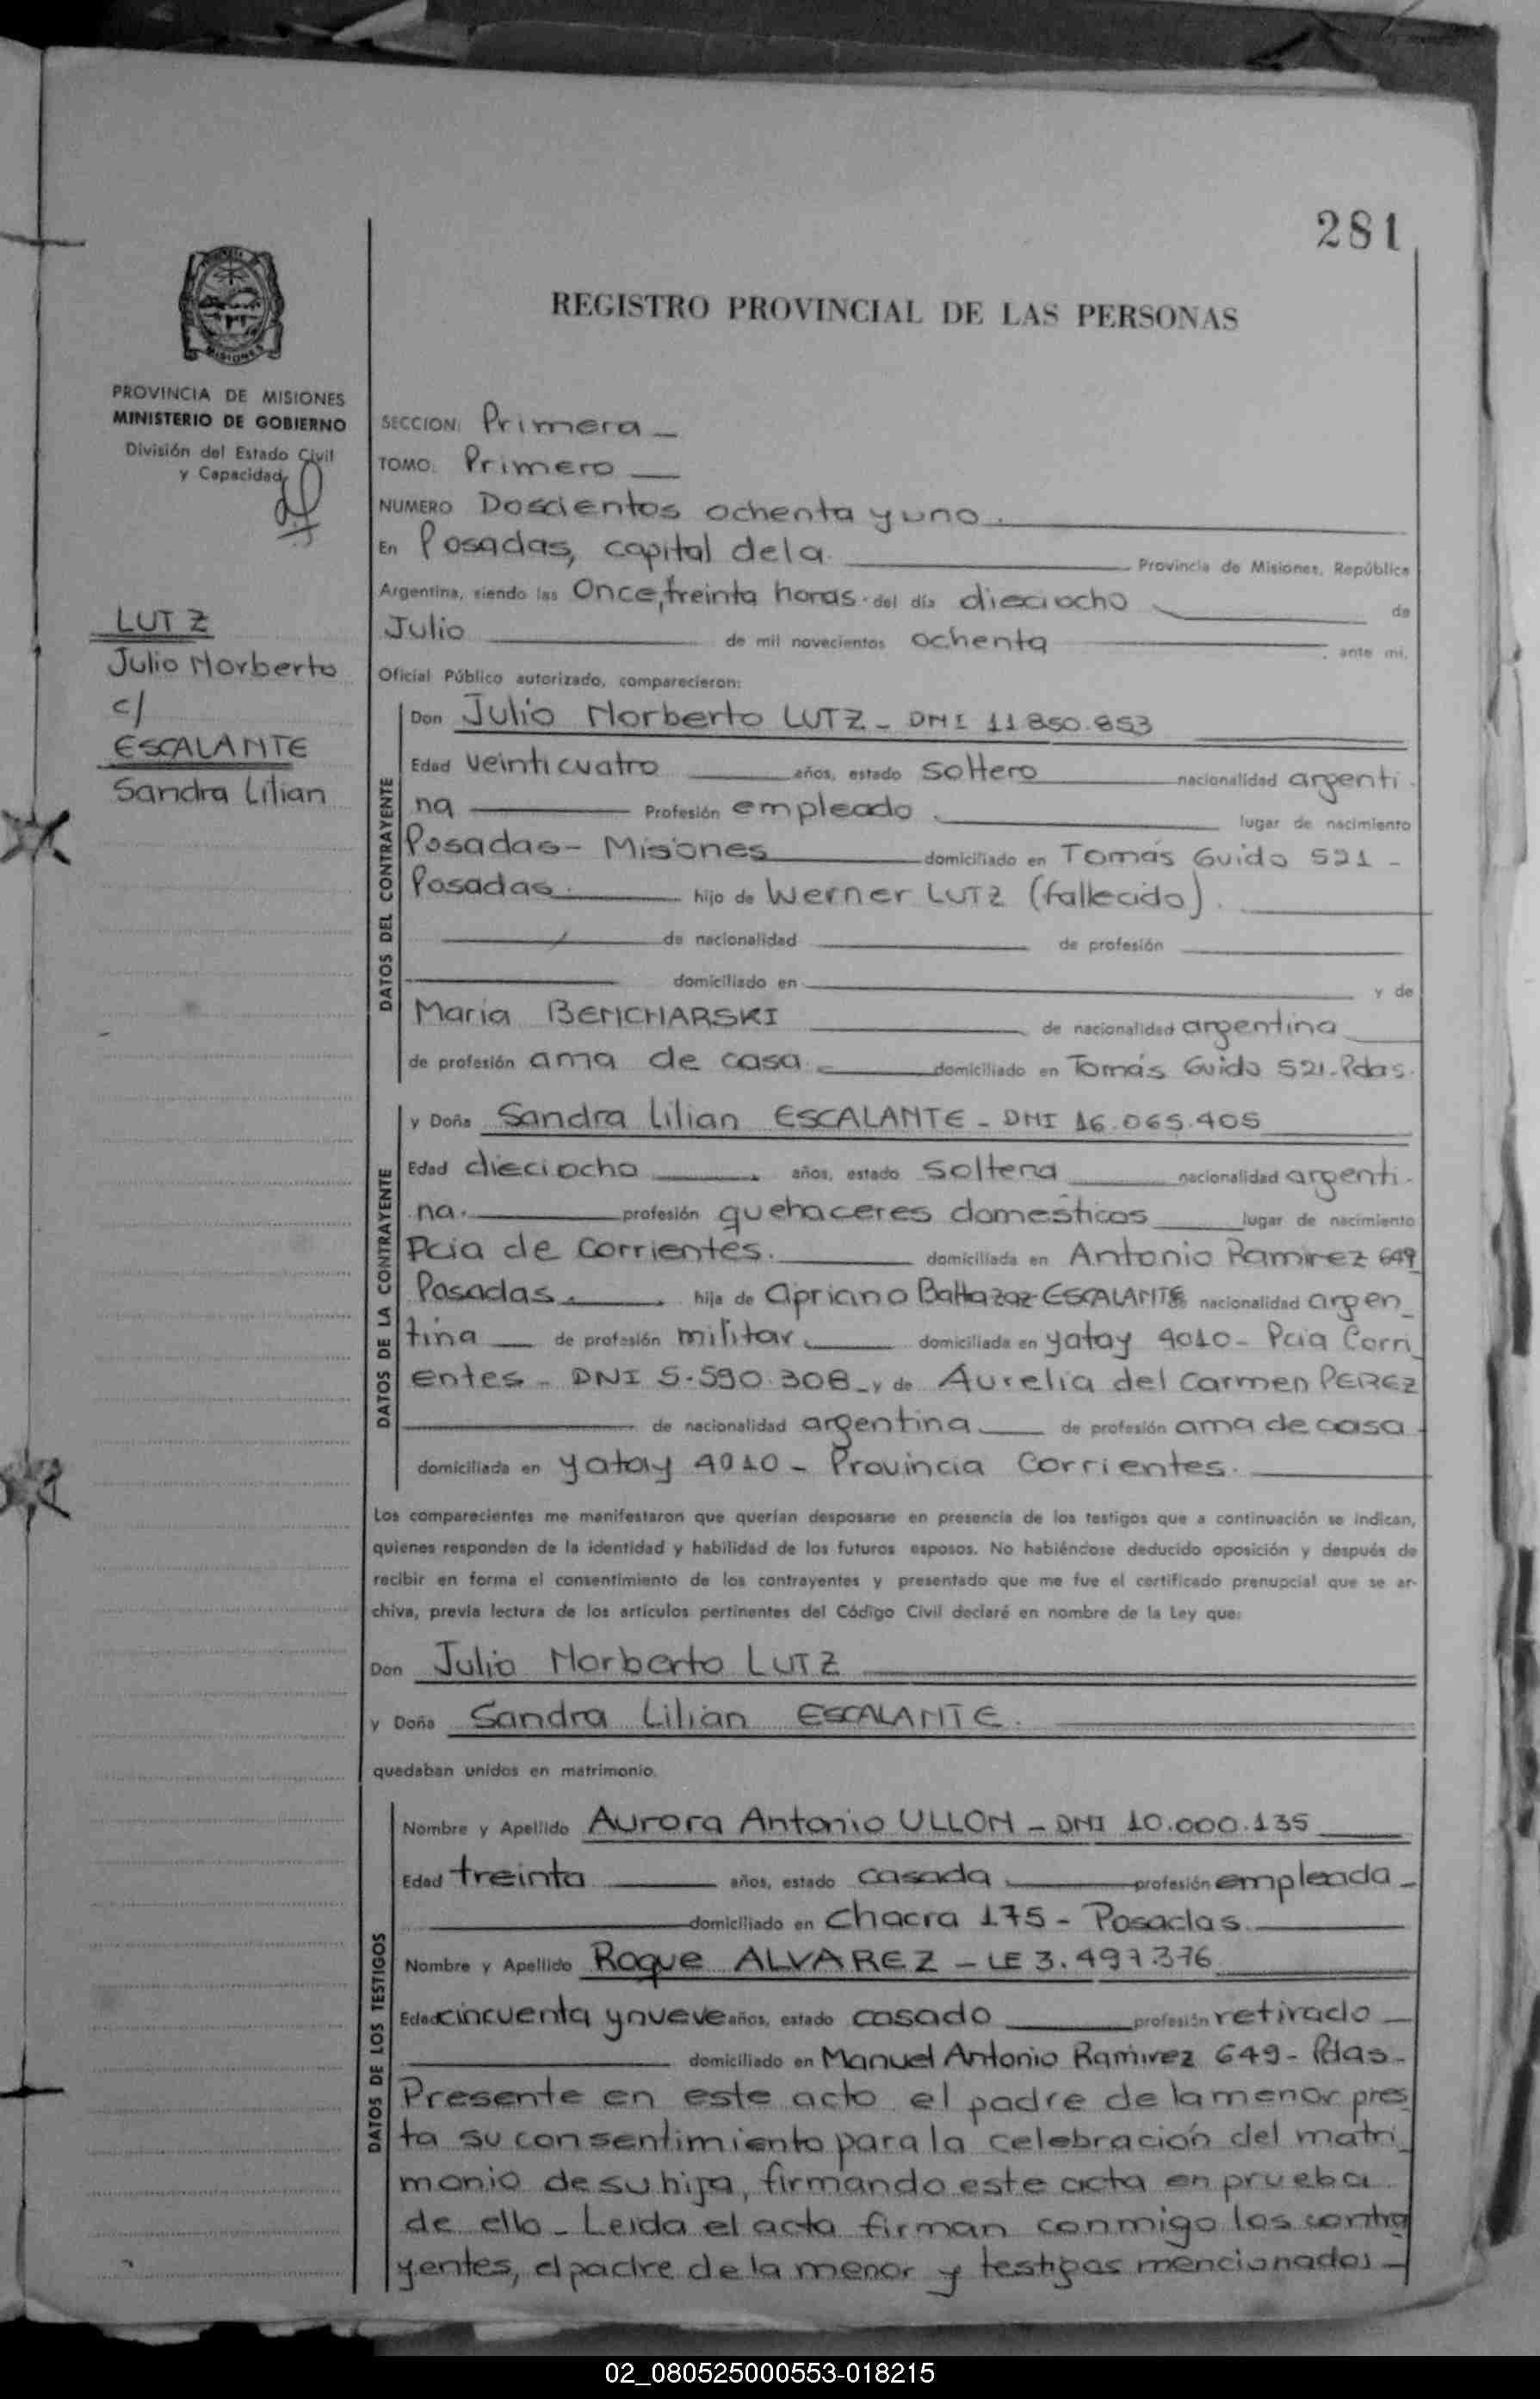 281
REGISTRO PROVINCIAL DE LAS PERSONAS
PROVINCIA DE MISIONES
MINISTERIO DE GOBIERNO
División del Estado Civil
y Capacidad
LUTZ
Julio Norberto
c/
ESCALANTE
Sandra Lilian
SECCION: Primera
TOMO: Primero
NUMERO Doscientos ochenta y uno.
En Posadas, capital de la Provincia de Misiones, República
Argentina, siendo las Once, treinta horas. del día dieciocho de
Julio de mil novecientos ochenta, ante mi,
Oficial Público autorizado, comparecieron:
DATOS DEL CONTRAYENTE
Don Julio Norberto LUTZ - DNI 11.850.853
Edad veinticuatro años, estado soltero nacionalidad argenti-
na Profesión empleado. lugar de nacimiento
Posadas - Misiones domiciliado en Tomás Guido 521 -
Posadas. hijo de Werner LUTZ (fallecido).
de nacionalidad de profesión
domiciliado en y de
Maria BENCHARSKI de nacionalidad argentina
de profesión ama de casa. domiciliado en Tomás Guido 521. Pdas.
DATOS DE LA CONTRAYENTE
y Doña Sandra Lilian ESCALANTE - DNI 16.065.405
Edad dieciocho años, estado soltera nacionalidad argenti-
na. profesión quehaceres domésticos lugar de nacimiento
Pcia de Corrientes. domiciliada en Antonio Ramirez 649
Posadas. hija de Cipriano Baltazar ESCALANTE de nacionalidad argen-
tina de profesión militar domiciliada en yatay 4010 - Pcia Corri
entes - DNI 5.590.308 - y de Aurelia del Carmen PEREZ
de nacionalidad argentina de profesión ama de casa
domiciliada en yatay 4010 - Provincia Corrientes.
Los comparecientes me manifestaron que querían desposarse en presencia de los testigos que a continuación se indican,
quienes responden de la identidad y habilidad de los futuros esposos. No habiéndose deducido oposición y después de
recibir en forma el consentimiento de los contrayentes y presentado que me fue el certificado prenupcial que se ar-
chiva, previa lectura de los artículos pertinentes del Código Civil declaré en nombre de la Ley que:
Don Julio Norberto LUTZ
y Doña Sandra Lilian ESCALANTE.
quedaban unidos en matrimonio.
DATOS DE LOS TESTIGOS
Nombre y Apellido Aurora Antonio ULLON - DNI 10.000.135
Edad treinta años, estado casada profesión empleada
domiciliado en Chacra 175 - Posadas.
Nombre y Apellido Roque ALVAREZ - LE 3.497.376
Edad cincuenta y nueve años, estado casado profesión retirado
domiciliado en Manuel Antonio Ramirez 649 - Pdas -
Presente en este acto el padre de la menor pres
ta su consentimiento para la celebración del matri
monio de su hija, firmando este acta en prueba
de ello - Leida el acta firman conmigo los contra
yentes, el padre de la menor y testigos mencionados -
02_080525000553-018215